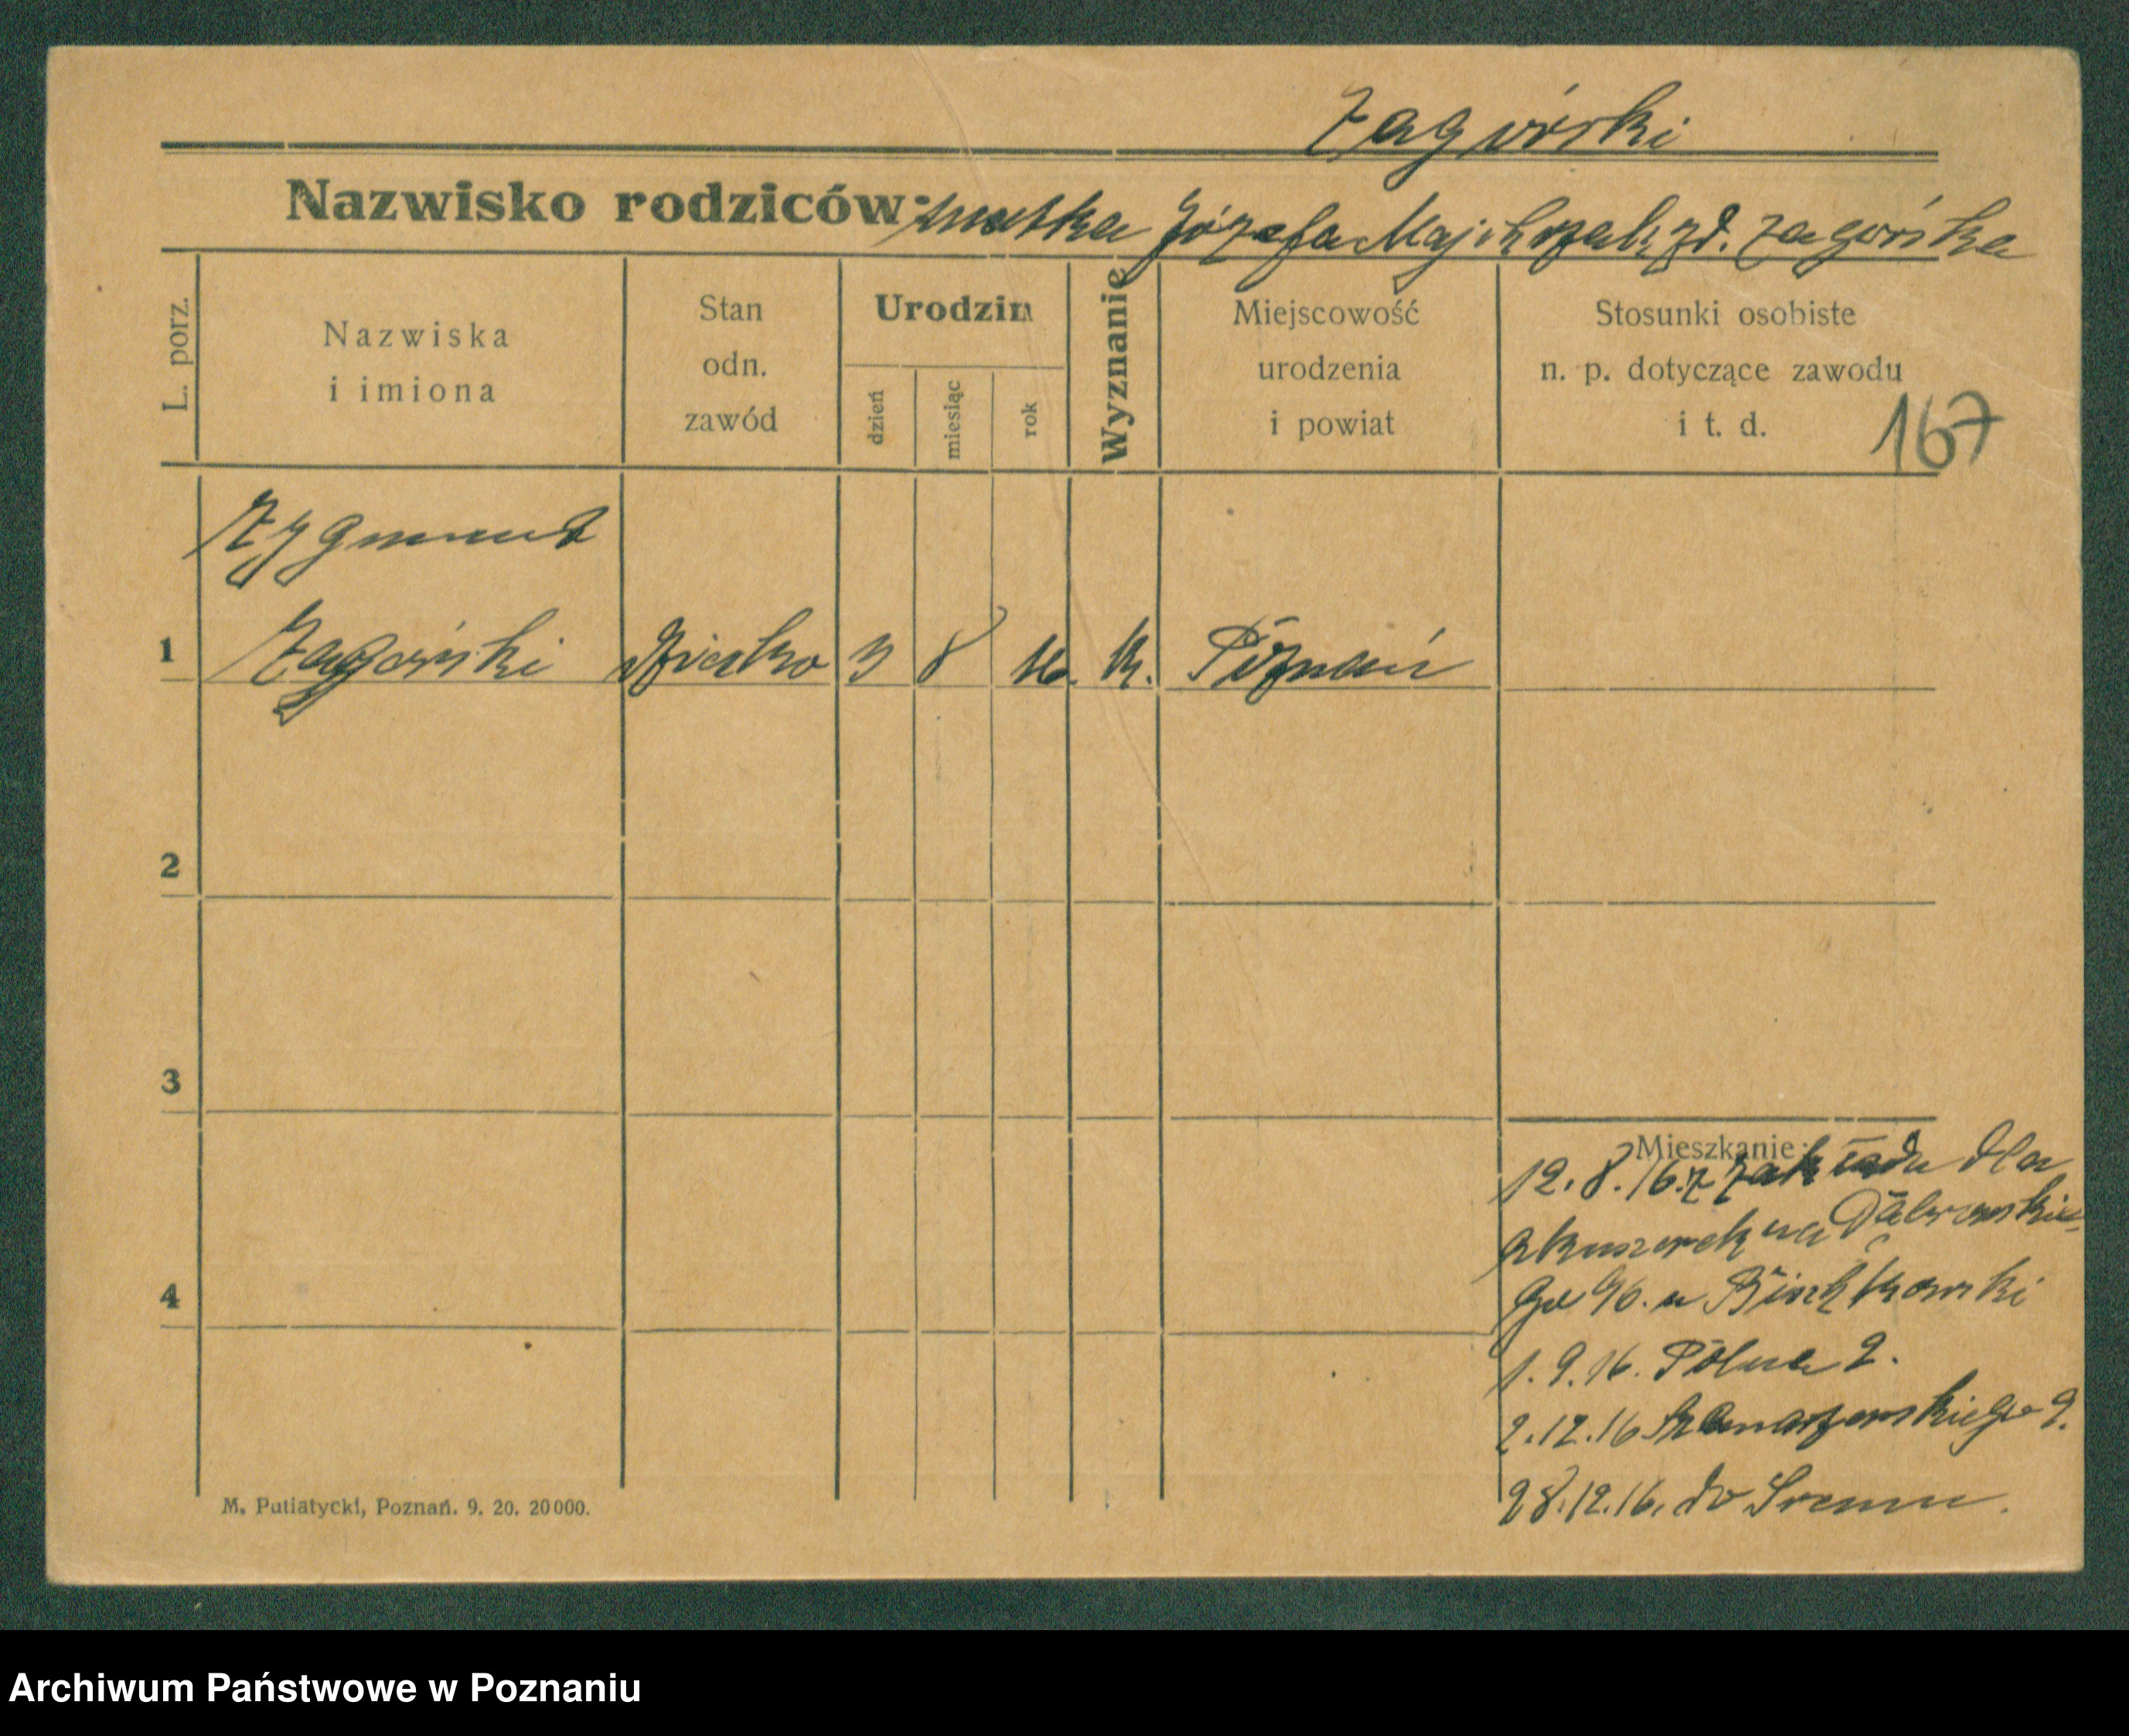 Zagórski
Nazwisko rodziców: matka Józefa Majchrzak zd. Zagórska
L. porz.
Nazwiska
i imiona
Stan
odn.
zawód
Urodzin
dzień
miesiąc
rok
Wyznanie
Miejscowość
urodzenia
i powiat
Stosunki osobiste
n. p. dotyczące zawodu
i t. d.
167
Zygmunt
1 Zagórski dziecko 3 8 16. k. Poznań
2
3
4
Mieszkanie:
12.8.16. z zakładu dla
akuszerek na Dąbrowskie-
go 96. u
1.9.16. Polna 2.
2.12.16 Szamarzewskiego 9.
28.12.16. do Sremu.
M. Putiatycki, Poznań. 9. 20. 20000.
Archiwum Państwowe w Poznaniu